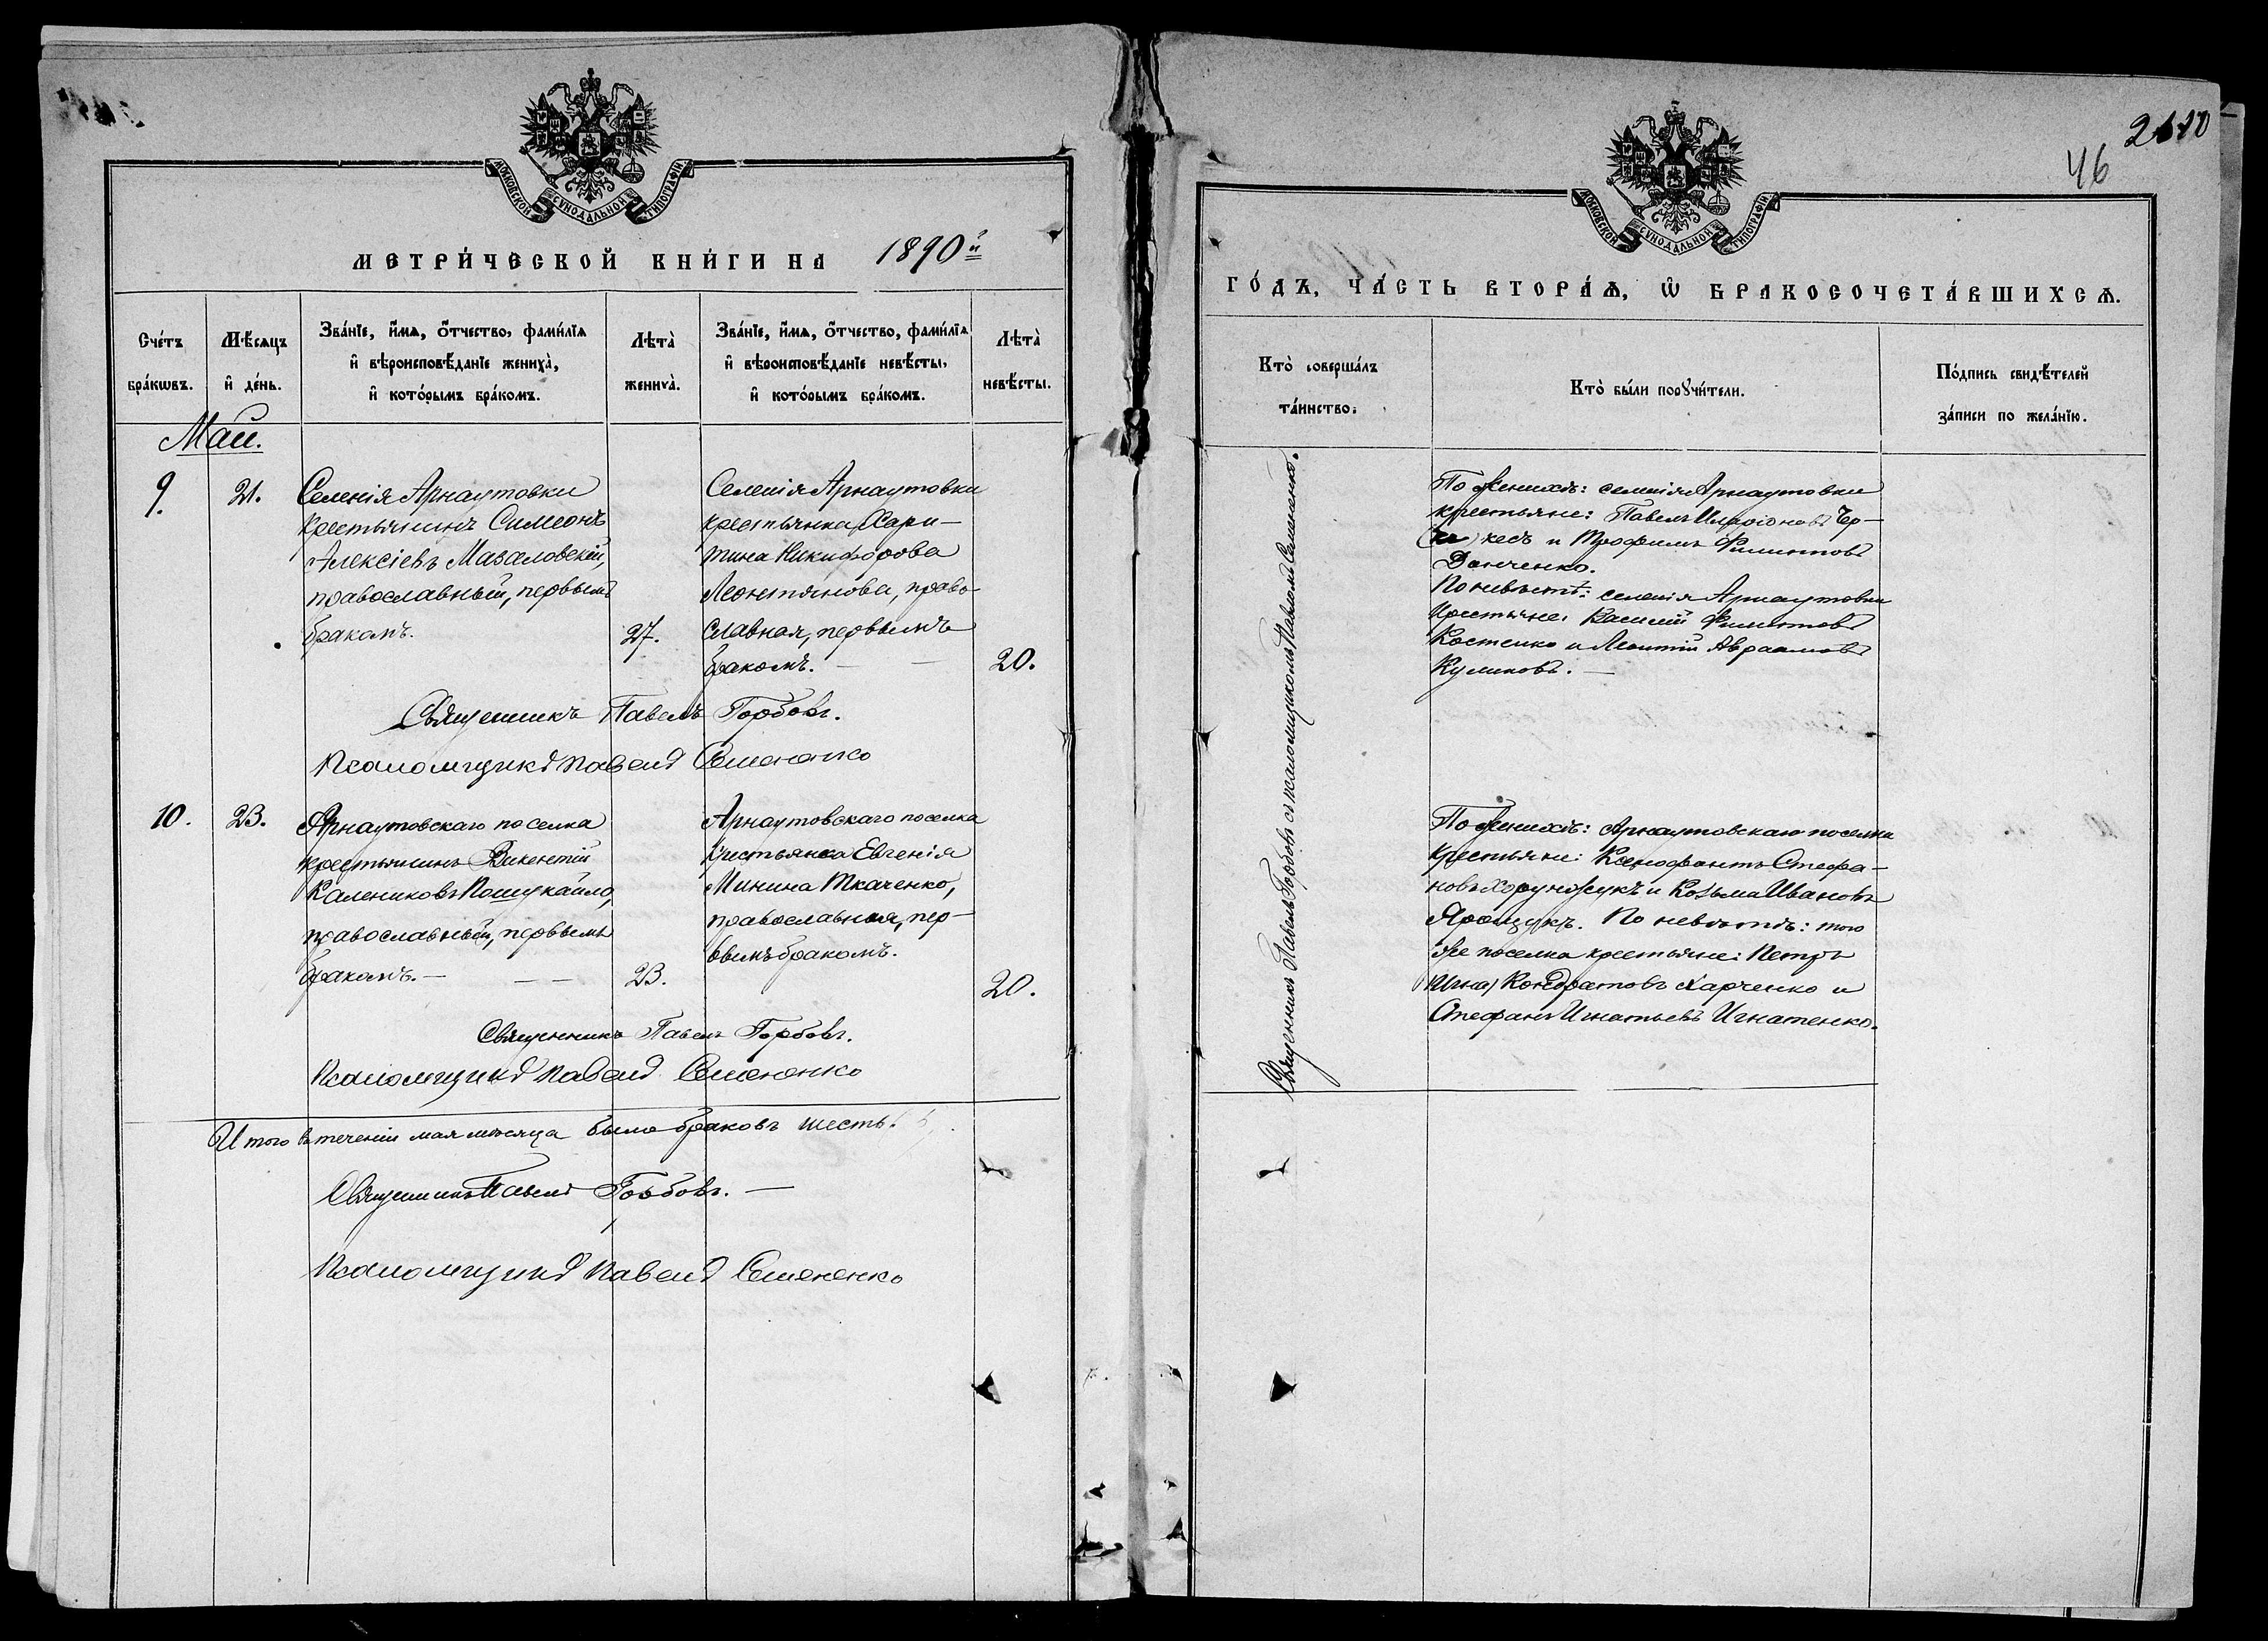 МОСКОВСКОЙ СУНОДАЛЬНОЙ ТИПОГРАФІИ
МЕТРИ́ЧЕСКОЙ КНИ́ГИ НА 1890й
Сче́тъ бра́кѡвъ.
Мѣ́сяцъ и҆ де́нь.
Зва́нїе, и҆́мѧ, ѻ҆́тчество, фами́лїѧ
и҆ вѣроисповѣ́данїе жениха̀,
и҆ кото́рымъ бра́комъ.
Лѣта̀ жениха̀.
Зва́нїе, и҆́мѧ, ѻ҆́тчество, фами́лїѧ
и҆ вѣроисповѣ́данїе невѣ́сты,
и҆ кото́рымъ бра́комъ.
Лѣта̀ невѣ́сты.
Маи.
9. 21.
Селенія Арнаутовки
крестьянинъ Симеонъ
Алексіевъ Мазаловскій,
православный, первымъ
бракомъ.
27.
Селенія Арнаутовки
крестьянка Хари-
тина Никифорова
Леонтянова, право-
славная, первымъ
бракомъ. —
20.
Священникъ Павелъ Горбовъ.
Псаломщикъ Павелъ Семененко
10. 23.
Арнаутовскаго поселка
крестьянинъ Викентій
Калениковъ Пошукайло,
православный, первымъ
бракомъ. —
23.
Арнаутовскаго поселка
крестьянка Евгенія
Минина Ткаченко,
православная, пер-
вымъ бракомъ.
20.
Священникъ Павелъ Горбовъ.
Псаломщикъ Павелъ Семененко
Итого въ теченіи мая мѣсяца было браковъ шесть.
Священникъ Павелъ Горбовъ. —
Псаломщикъ Павелъ Семененко
46
МОСКОВСКОЙ СУНОДАЛЬНОЙ ТИПОГРАФІИ
ГО́ДЪ, ЧА́СТЬ ВТОРА́Ѧ, Ѡ҆ БРАКОСОЧЕТА́ВШИХСѦ.
Кто̀ соверша́лъ
та́инство.
Кто̀ бы́ли порꙋчи́тели.
По́дпись свидѣ́телей
за́писи по жела́нїю.
Священникъ Павелъ Горбовъ съ псаломщикомъ Павломъ Семененко.
По женихѣ: селенія Арнаутовки
крестьяне: Павелъ Иларіоновъ Чер-
кесъ и Трофимъ Филиповъ
Данченко.
По невѣстѣ: селенія Арнаутовки
крестьяне: Василій Филиповъ
Костенко и Леонтій Авраамовъ
Куликовъ. —
По женихѣ: Арнаутовскаго поселка
крестьяне: Ксенофонтъ Стефа-
новъ Хорунжукъ и Козьма Ивановъ
Ярощукъ. По невѣстѣ: того
же поселка крестьяне: Петръ
Кондратовъ Харченко и
Стефанъ Игнатьевъ Игнатенко.